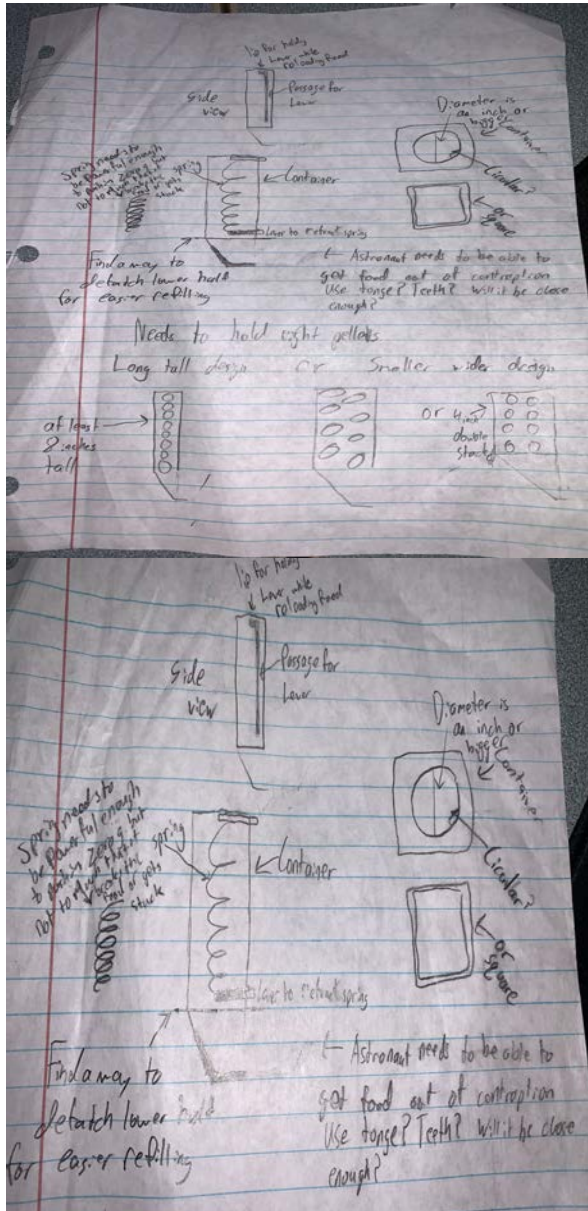 lip for holding
Lever while
reloading food
Side
view
Passage for
Lever
Diameter is
an inch or
bigger
Container
Circular?
or
square
Spring needs to
be powerful enough
to push in zero g but
not to much that it
breaks the
food or gets
stuck
spring
Container
Lever to retract spring
Find a way to
detatch lower hold
for easier refilling
← Astronaut needs to be able to
get food out of contraption
Use tonge? Teeth? Will it be close
enough?
Needs to hold eight pellets
Long tall design or Smaller wider design
at least
8 inches
tall
or 4 inch
double
stacked
lip for holding
Lever while
reloading food
Side
view
Passage for
Lever
Diameter is
an inch or
bigger
Container
Circular?
or
square
Spring needs to
be powerful enough
to push in zero g but
not to much that it
breaks the
food or gets
stuck
spring
Container
Lever to retract spring
Find a way to
detatch lower hold
for easier refilling
← Astronaut needs to be able to
get food out of contraption
Use tonge? Teeth? Will it be close
enough?